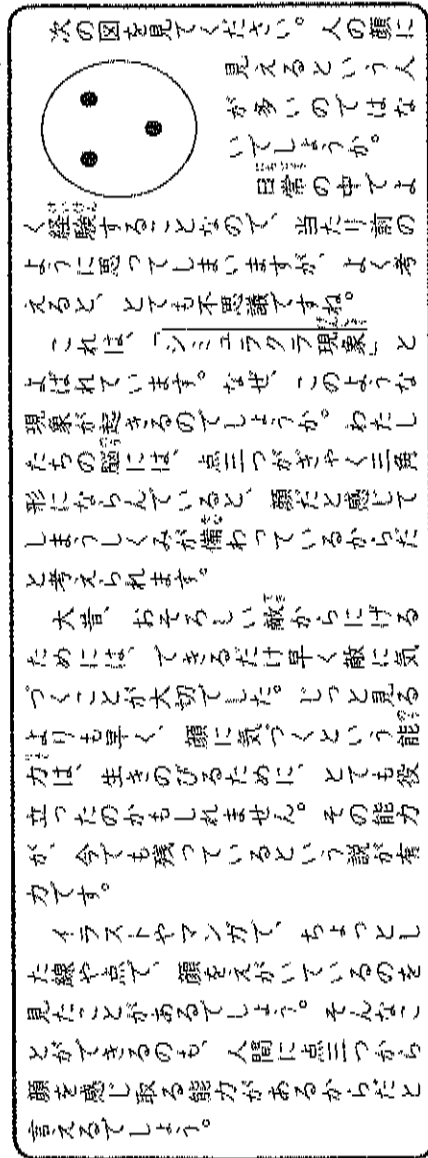 次の図を見てください。人の顔に
見えるという人
が多いのではな
いでしょうか。
日常の中でよ
く経験することなので、当たり前の
ように思ってしまいますが、よく考
えると、とても不思議ですね。
これは、「シミュラクラ現象」と
よばれています。なぜ、このような
現象が起きるのでしょうか。わたし
たちの脳には、点三つがぎゃく三角
形にならんでいると、顔だと感じて
しまうしくみが備わっているからだ
と考えられます。
大昔、おそろしい敵からにげる
ためには、できるだけ早く敵に気
づくことが大切でした。じっと見る
よりも早く、顔に気づくという能
力は、生きのびるために、とても役
立ったのかもしれません。その能力
が、今でも残っているという説が有
力です。
イラストやマンガで、ちょっとし
た線や点で、顔をえがいているのを
見たことがあるでしょう。そんなこ
とができるのも、人間に点三つから
顔を感じ取る能力があるからだと
言えるでしょう。